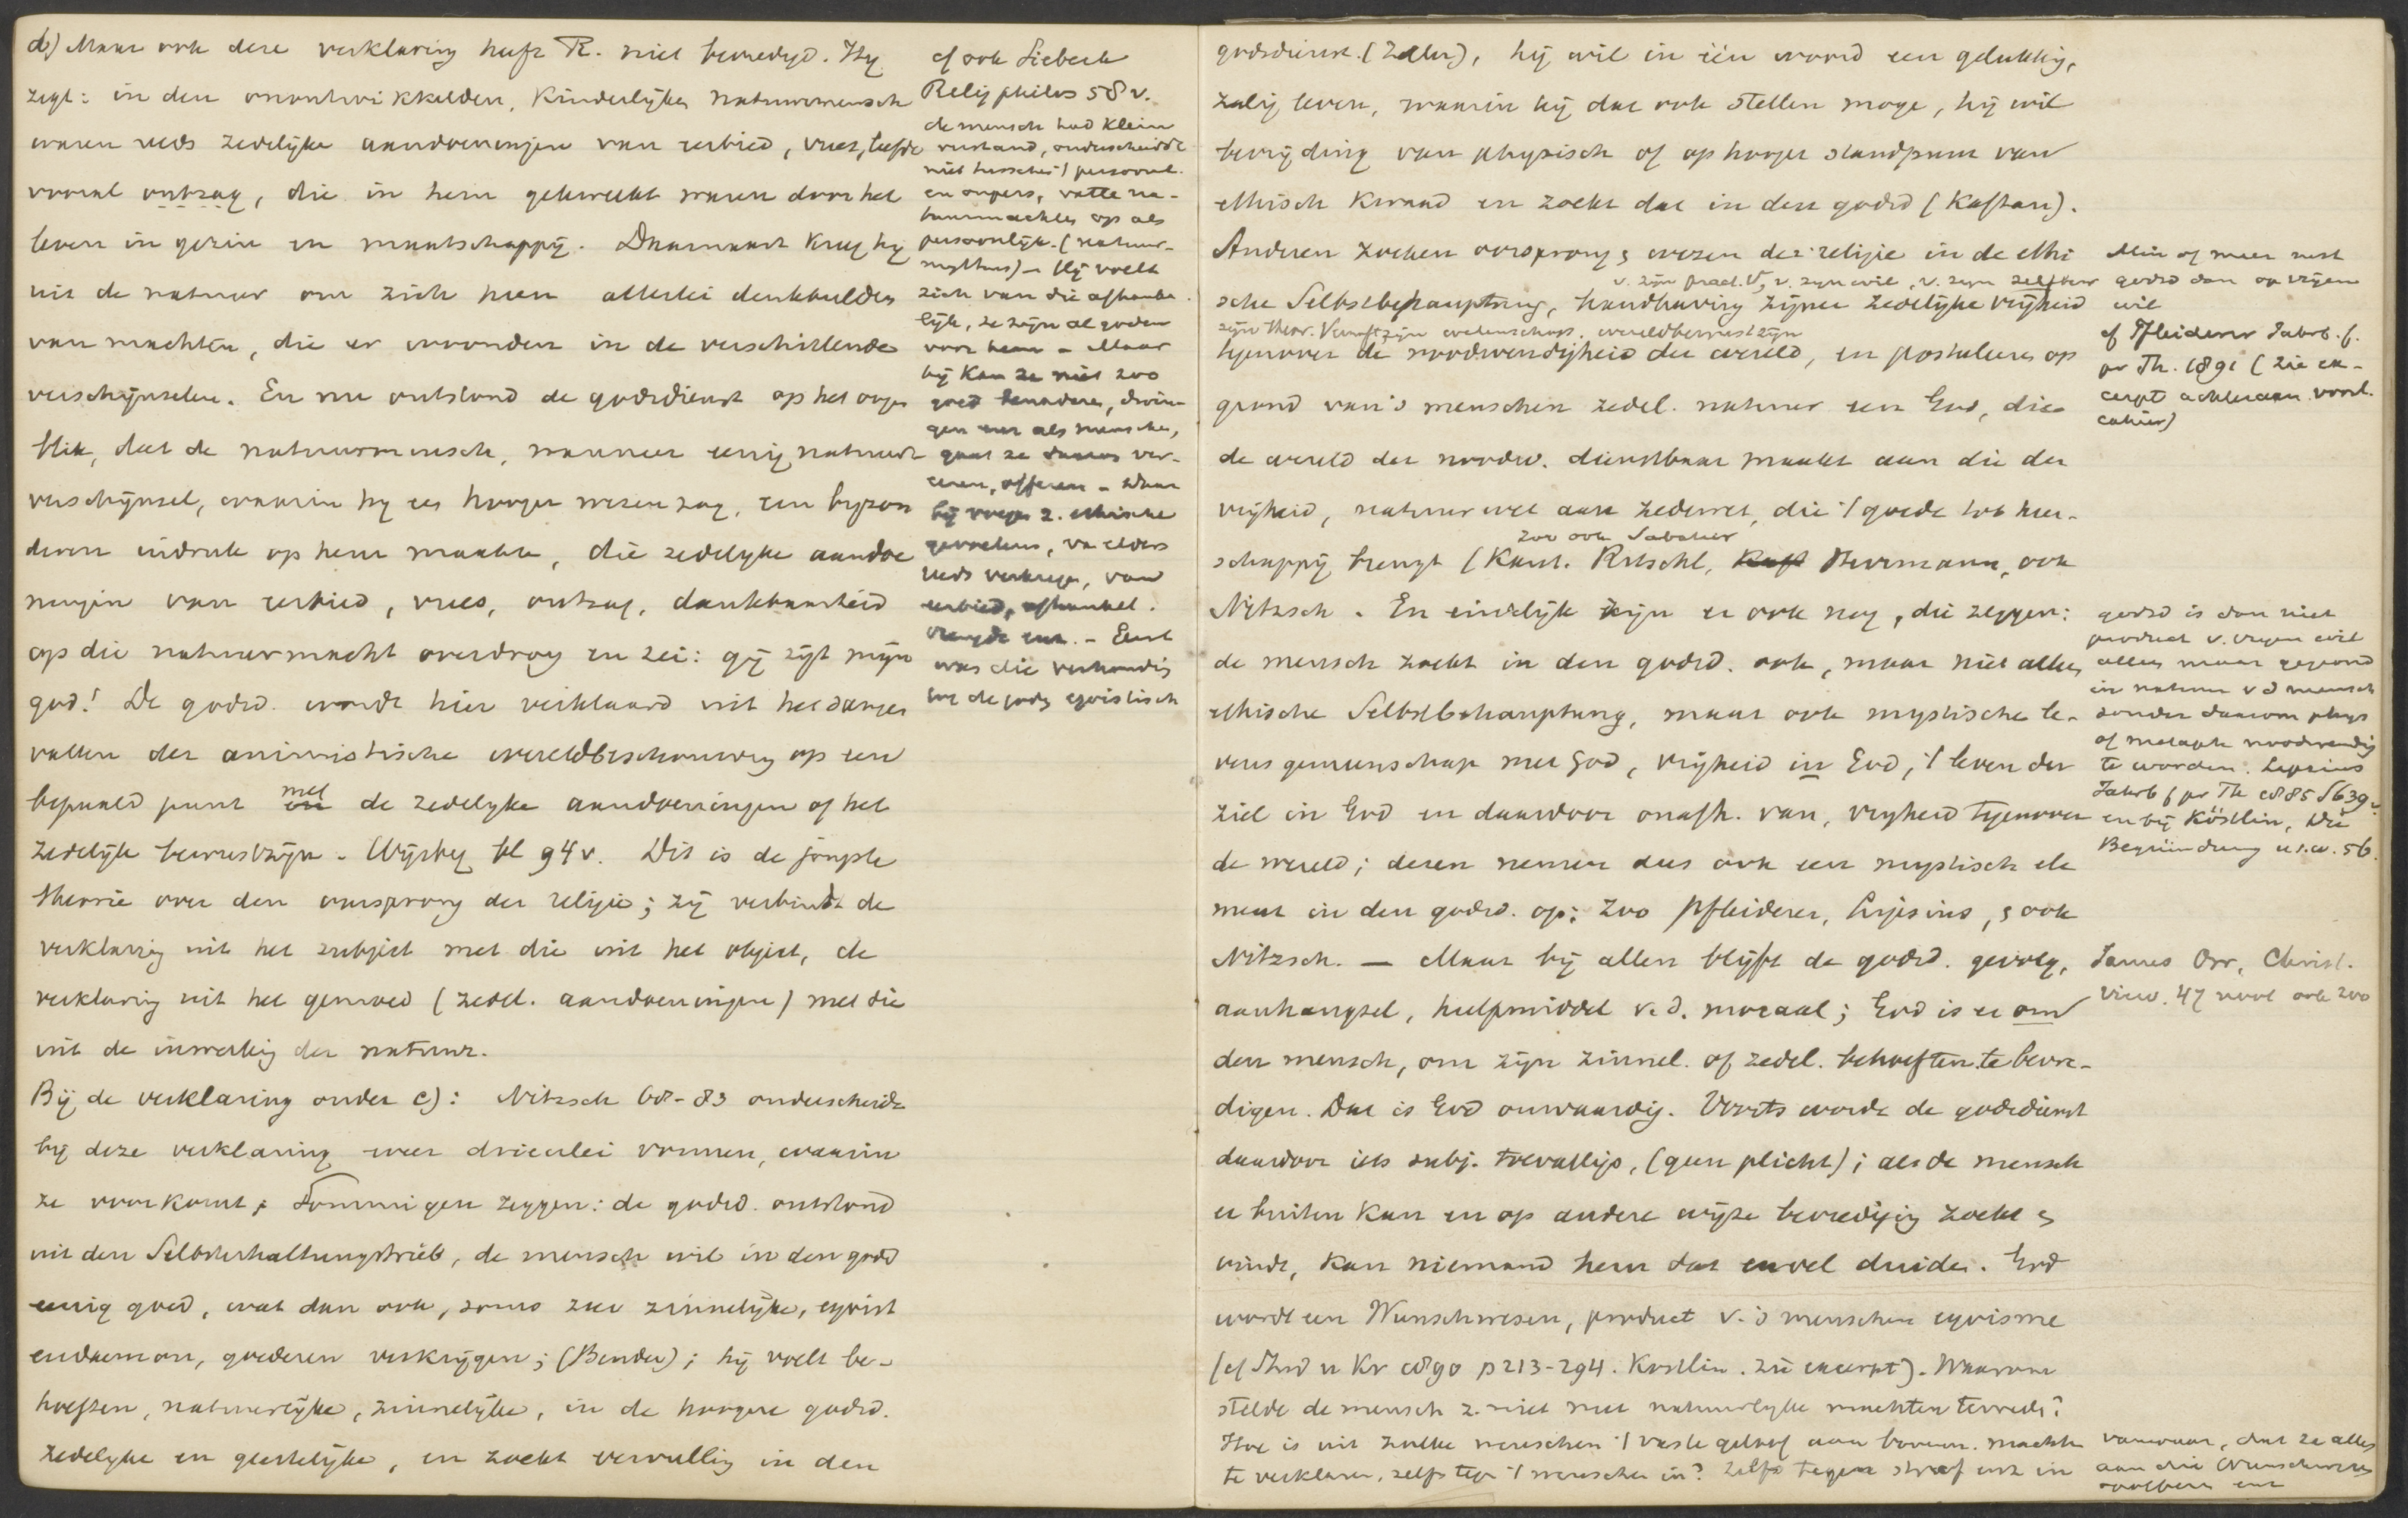 d) Maar ook deze verklaring heeft R. niet bevredigd. Hij
zegt: in den onontwikkelden, Kinderlijken natuurmensch
waren reeds zedelijke aandoeningen van eerbied, vrees, liefde
vooral ontzag, die in hem gekweekt waren door het
leven in gezin en maatschappij. Daarnaast kreeg hij
uit de natuur om zich heen allerlei denkbeelden
van machten, die er woonden in de verschillende
verschijnselen. En nu ontstond de godsdienst op het oogen
blik, dat de natuurmensch, wanneer eenig natuur
verschijnsel, waarin hij een hooger wezen zag, een byzon
deren indruk op hem maakte, die zedelyke aandoe
ningen van eerbied, vrees, ontzag, dankbaarheid
op die natuurmacht overdroeg en zei: gij zijt mijn
god! De godsd. wordt hier verklaard uit het samen
vallen der animistische wereldbeschouwing op een
bepaald punt met de zedelyke aandoeningen of het
zedelijk bewustzijn. Wijsbeg bl 94v. Dit is de jongste
theorie over den oorsprong der religie; zij verbindt de
verklaring uit het subject met die uit het object, de
verklaring uit het gemoed (zedel. aandoeningen) met die
uit de inwerking der natuur.
Bij de verklaring onder c): Nitzsch 68-83 onderscheidt
bij deze verklaring weer drieerlei vormen, waarin
ze voorkomt; Sommigen zeggen: de godsd. ontstond
uit den Selbsterhaltungstrieb, de mensch wil in den godsd
eenig goed, wat dan ook, soms zeer zinnelijke, egoist
eudaemon, goederen verkrijgen; (Bender); hij voelt be-
hoeften, natuurlijke, zinnelijke, in de hoogere godsd.
zedelyke en geestelijke, en zoekt vervulling in den
cf ook Siebeck
Religphilos 58v.
de mensch had klein
verstand, onderscheidde
niet tusschen 't persoonl.
en onpers, vatte na-
tuurmachten op als
persoonlijk. (natuur-
mythus) - Hij voelt
zich van die afhanke
lijk, ze zijn al goden
voor hem - Maar
hij Kan ze niet zoo
goed benaderen, dwin
gen enz als menschen,
gaat ze daarom ver-
eeren, offeren - Daar
bij voegen z. ethische
gevoelens, van elders
reeds verkregen, van
eerbied, afhankel.
vreugde enz. - Eerst
was die verhouding
tot de goden egoistisch
godsdienst. (Zeller), hij wil in één woord een gelukkig,
zalig leven, waarin hij dat ook stellen moge, hij wil
bevrijding van physisch of op hooger standpunt van
ethisch Kwaad en zoekt dat in den godsd (Kaftan).
Anderen zoeken oorsprong & wezen der religie in de ethi
v. zijn pract. V, v. zijn wil, v. zijn zelfbew
sche Selbstbehauptung, handhaving zijner zedelijke vrijheid
zijn theor. Vernunft, zijn wetenschap, wereldbewustzijn
tegenover de noodwendigheid der wereld, en postuleeren op
grond van 's menschen zedel. natuur een God, die
de wereld der noodw. dienstbaar maakt aan die der
vrijheid, natuurwet aan zedewet, die 't goede tot heer-
zoo ook Sabatier
schappij brengt (Kant. Ritschl, Herrmann, ook
Nitzsch. En eindelijk zijn er ook nog, die zeggen:
de mensch zoekt in den godsd. ook, maar niet alleen
ethische Selbstbehauptung, maar ook mystische le-
vensgemeenschap met God, vrijheid in God, 't leven der
ziel in God en daardoor onafh. van, vryheid tegenover
de wereld; dezen nemen dus ook een mystisch ele
ment in den godsd. op; zoo Pfleiderer, Lipsius, & ook
Nitzsch. — Maar bij allen blijft de godsd. gevolg,
aanhangsel, hulpmiddel v.d. moraal; God is er om
den mensch, om zijn zinnel. of zedel. behoeften te bevre-
digen. Dat is God onwaardig. Voorts wordt de godsdienst
daardoor iets subj. toevalligs, (geen plicht); als de mensch
er buiten Kan en op andere wijze bevrediging zoekt &
vindt, Kan niemand hem dat euvel duiden. God
wordt een Wunschwesen, product v. 's menschen egoisme
(cf Stud u Kr 1890 p 213-294. Kostlin. zie excerpt). Waarom
stelde de mensch z. niet met natuurlyke machten tevreden?
Hoe is uit zulke wenschen 't vaste geloof aan bovenn. machten
te verklaren, zelfs tegen 't wenschen in? Zelfs tegen straf enz in
Min of meer rust
godsd dan op vrijen
wil
cf Pfleiderer Jahrb. f.
pr Th. 1891 (zie ex-
cerpt achteraan voor.
cahier)
godsd is dan niet
product v. vrijen wil
alleen maar gegrond
in natuur v d mensch
zonder daarom phys
of metaph noodwendig
te worden. Lipsius
Jahrb f pr Th 1885 S 639.
en bij Köstlin, Die
Begründung u.s.w. 56.
James Orr, Christ.
View. 47 noot ook zoo
vanwaar, dat ze alles
aan die Wunschwesen